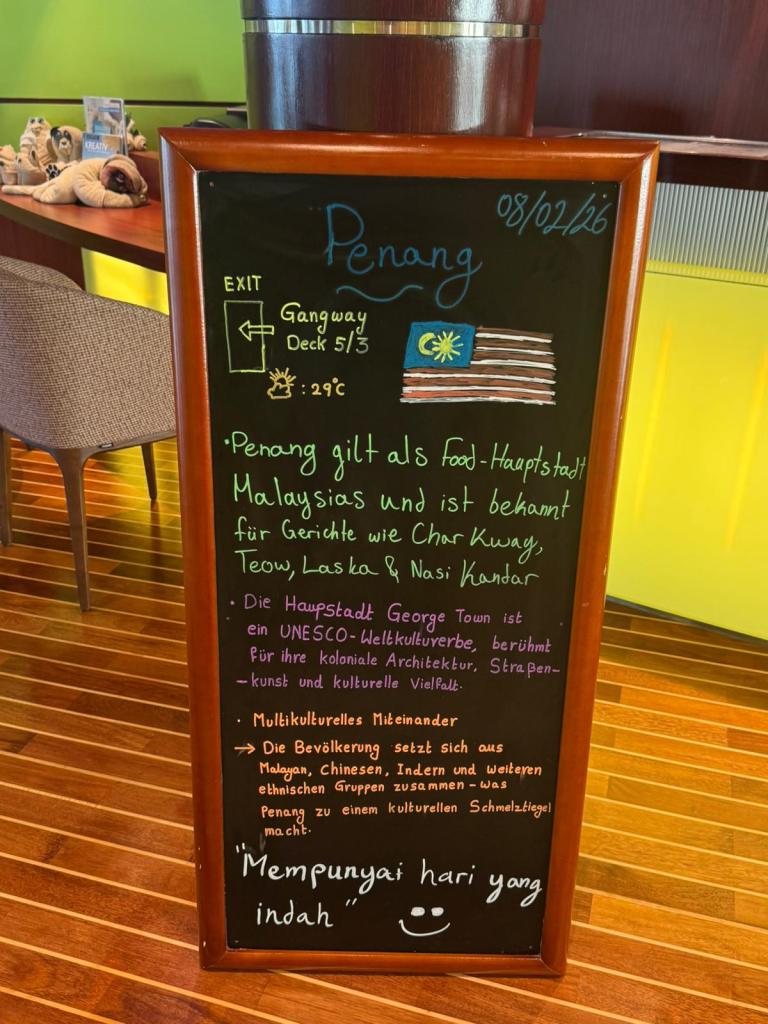 KREATIV
08/02/26
Penang
EXIT
Gangway
Deck 5/3
: 29°C
• Penang gilt als Food-Hauptstadt
Malaysias und ist bekannt
für Gerichte wie Char Kway,
Teow, Laska & Nasi Kandar
• Die Haupstadt George Town ist
ein UNESCO-Weltkulturverbe, berühmt
für ihre koloniale Architektur, Straßen-
-kunst und kulturelle Vielfalt.
• Multikulturelles Miteinander
→ Die Bevölkerung setzt sich aus
Malayan, Chinesen, Indern und weiteren
ethnischen Gruppen zusammen - was
Penang zu einem kulturellen Schmelztiegel
macht.
"Mempunyai hari yang
indah"